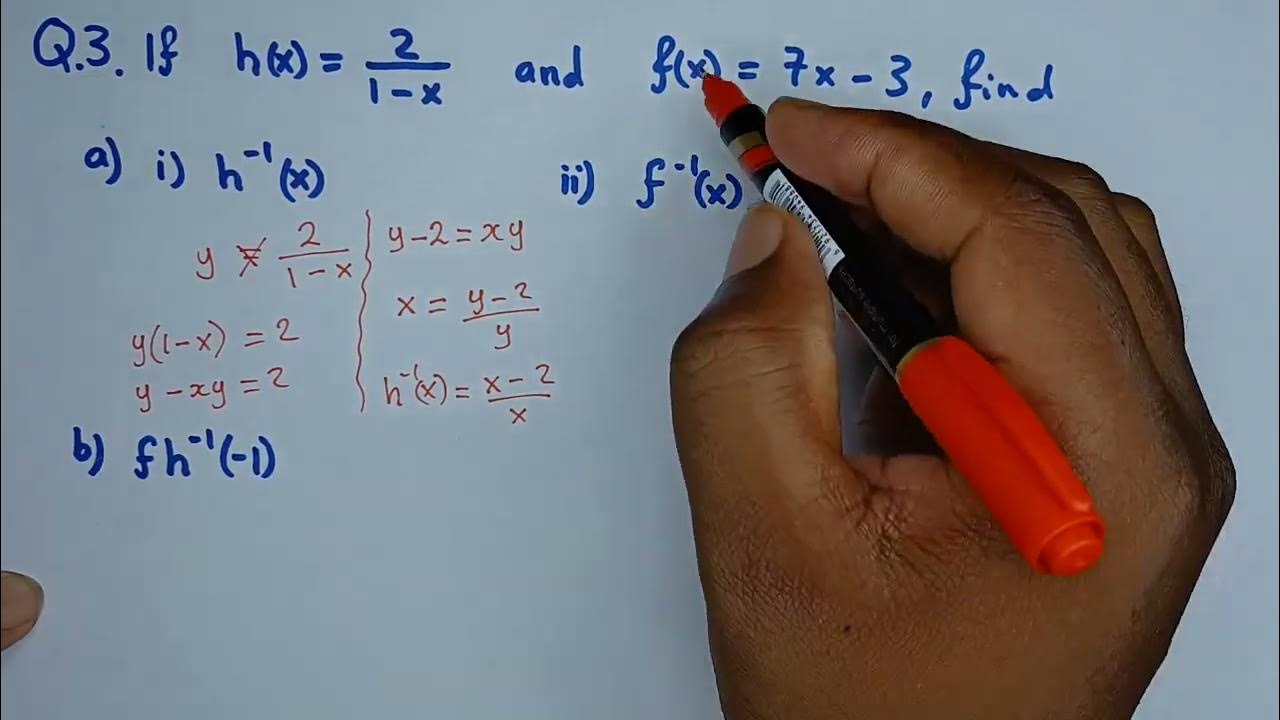 Q.3. If h(x) = 2/(1-x) and f(x) = 7x - 3, find
a) i) h⁻¹(x) ii) f⁻¹(x)
y = 2/(1-x)
y(1-x) = 2
y - xy = 2
y - 2 = xy
x = (y-2)/y
h⁻¹(x) = (x-2)/x
b) fh⁻¹(-1)